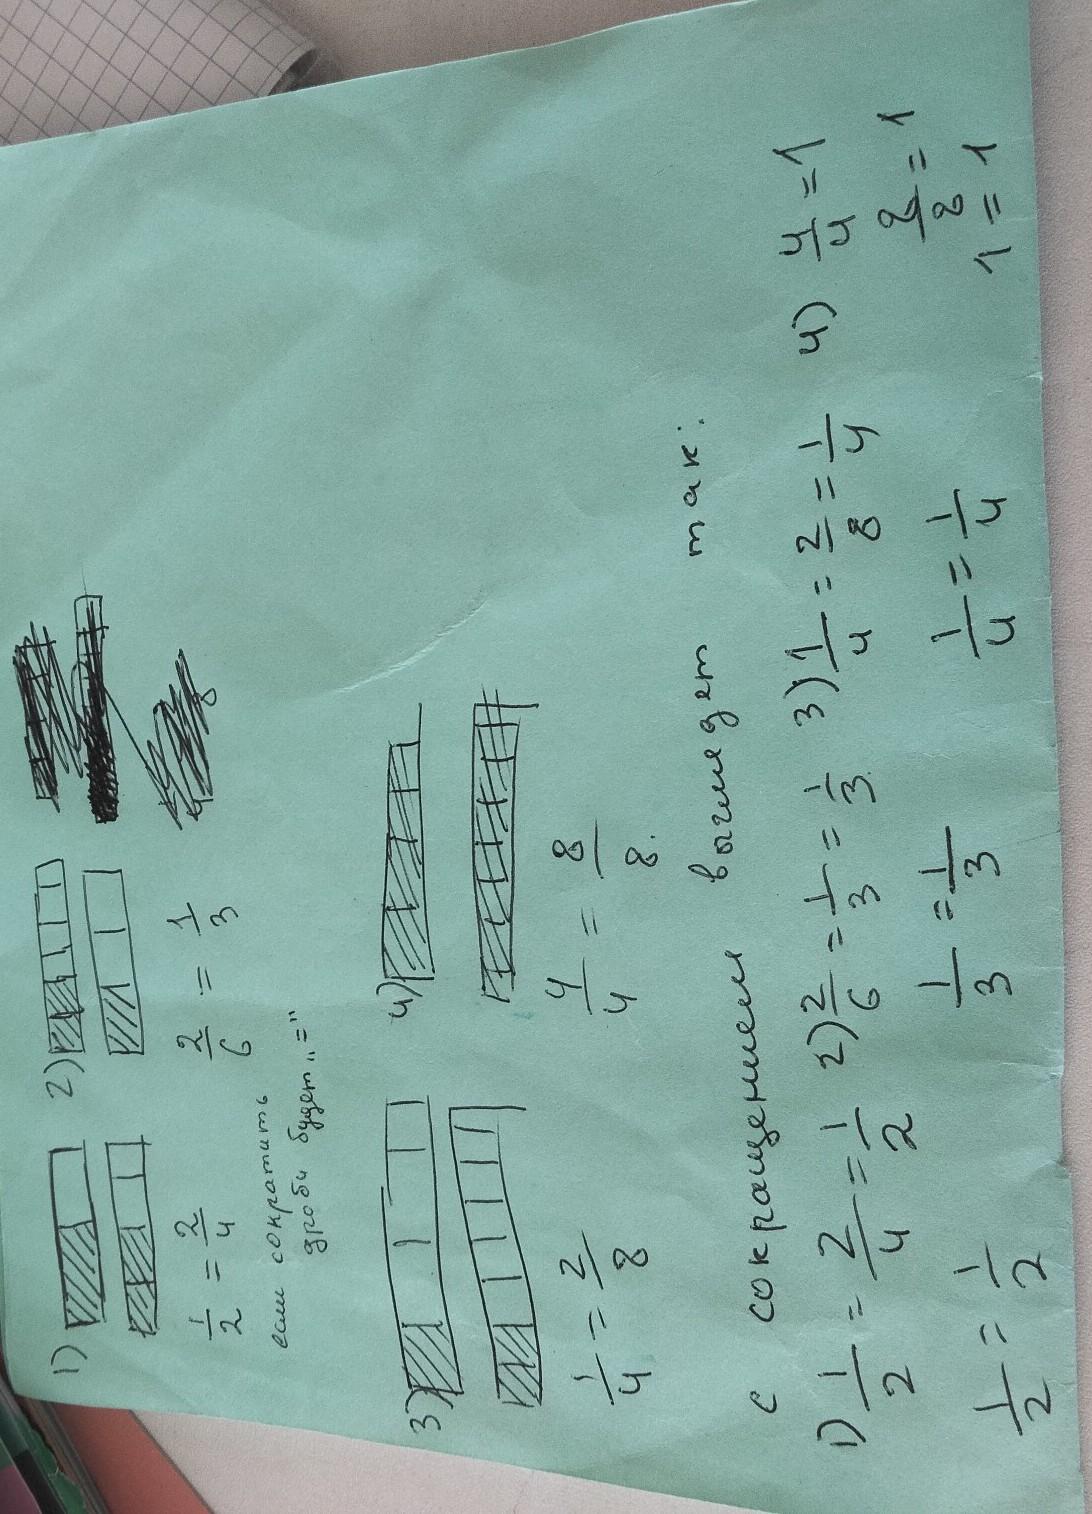 1)
1/2 = 2/4
если сократить
дроби будет „="
2)
2/6 = 1/3
3)
1/4 = 2/8
4)
4/4 = 8/8.
с сокращением выглядет так:
1) 1/2 = 2/4 = 1/2 2) 2/6 = 1/3 = 1/3 3) 1/4 = 2/8 = 1/4 4) 4/4 = 1
1/2 = 1/2 1/3 = 1/3 1/4 = 1/4 8/8 = 1
1 = 1